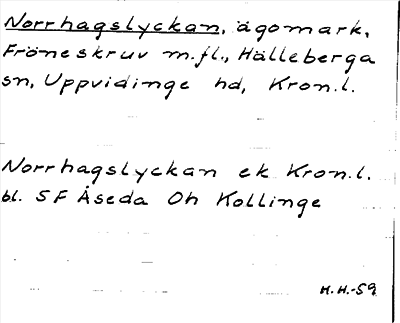 Norrhagslyckan, ägomark,
Fröneskruv m.fl., Hälleberga
sn, Uppvidinge hd, Kron.l.
Norrhagslyckan ek Kron.l.
bl. SF Åseda Oh Kollinge
H.H.-59